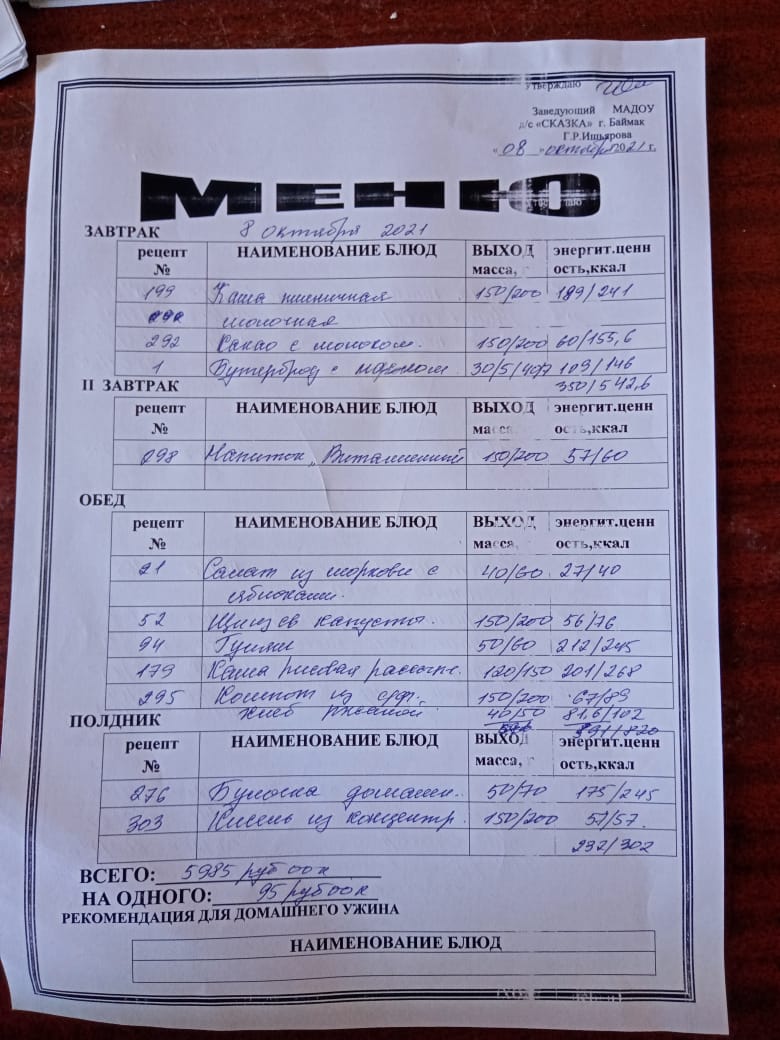 Утверждаю
Заведующий МАДОУ
д/с «СКАЗКА» г. Баймак
Г.Р.Ишьярова
«08» октября 2021 г.
МЕНЮ
ЗАВТРАК 8 октября 2021
рецепт № НАИМЕНОВАНИЕ БЛЮД ВЫХОД масса, энергит.ценн ость,ккал
199 Каша пшеничная 150/200 189/241
молочная
292 Какао с молоком. 150/200 60/155,6
1 Бутерброд с 30/5/40/7 109/146
350/542,6
II ЗАВТРАК
рецепт № НАИМЕНОВАНИЕ БЛЮД ВЫХОД масса, энергит.ценн ость,ккал
298 Напиток „Витаминный 150/200 57/60
ОБЕД
рецепт № НАИМЕНОВАНИЕ БЛЮД ВЫХОД масса, энергит.ценн ость,ккал
21 Салат из моркови с 40/60 27/40
яблоками.
52 Щи из св капусты. 150/200 56/76
94 Гуляш 50/60 212/245
179 Каша рисовая рассыпч. 120/150 201/268
295 Компот из с/фр. 150/200 67/89
хлеб ржаной 40/50 81,6/102
891/820
ПОЛДНИК
рецепт № НАИМЕНОВАНИЕ БЛЮД ВЫХОД масса, г энергит.ценн ость,ккал
276 Булочка домашн. 50/70 175/245
303 Кисель из концентр. 150/200 57/57.
232/302
ВСЕГО: 5985 руб 00 к
НА ОДНОГО: 95 руб 00 к
РЕКОМЕНДАЦИЯ ДЛЯ ДОМАШНЕГО УЖИНА
НАИМЕНОВАНИЕ БЛЮД